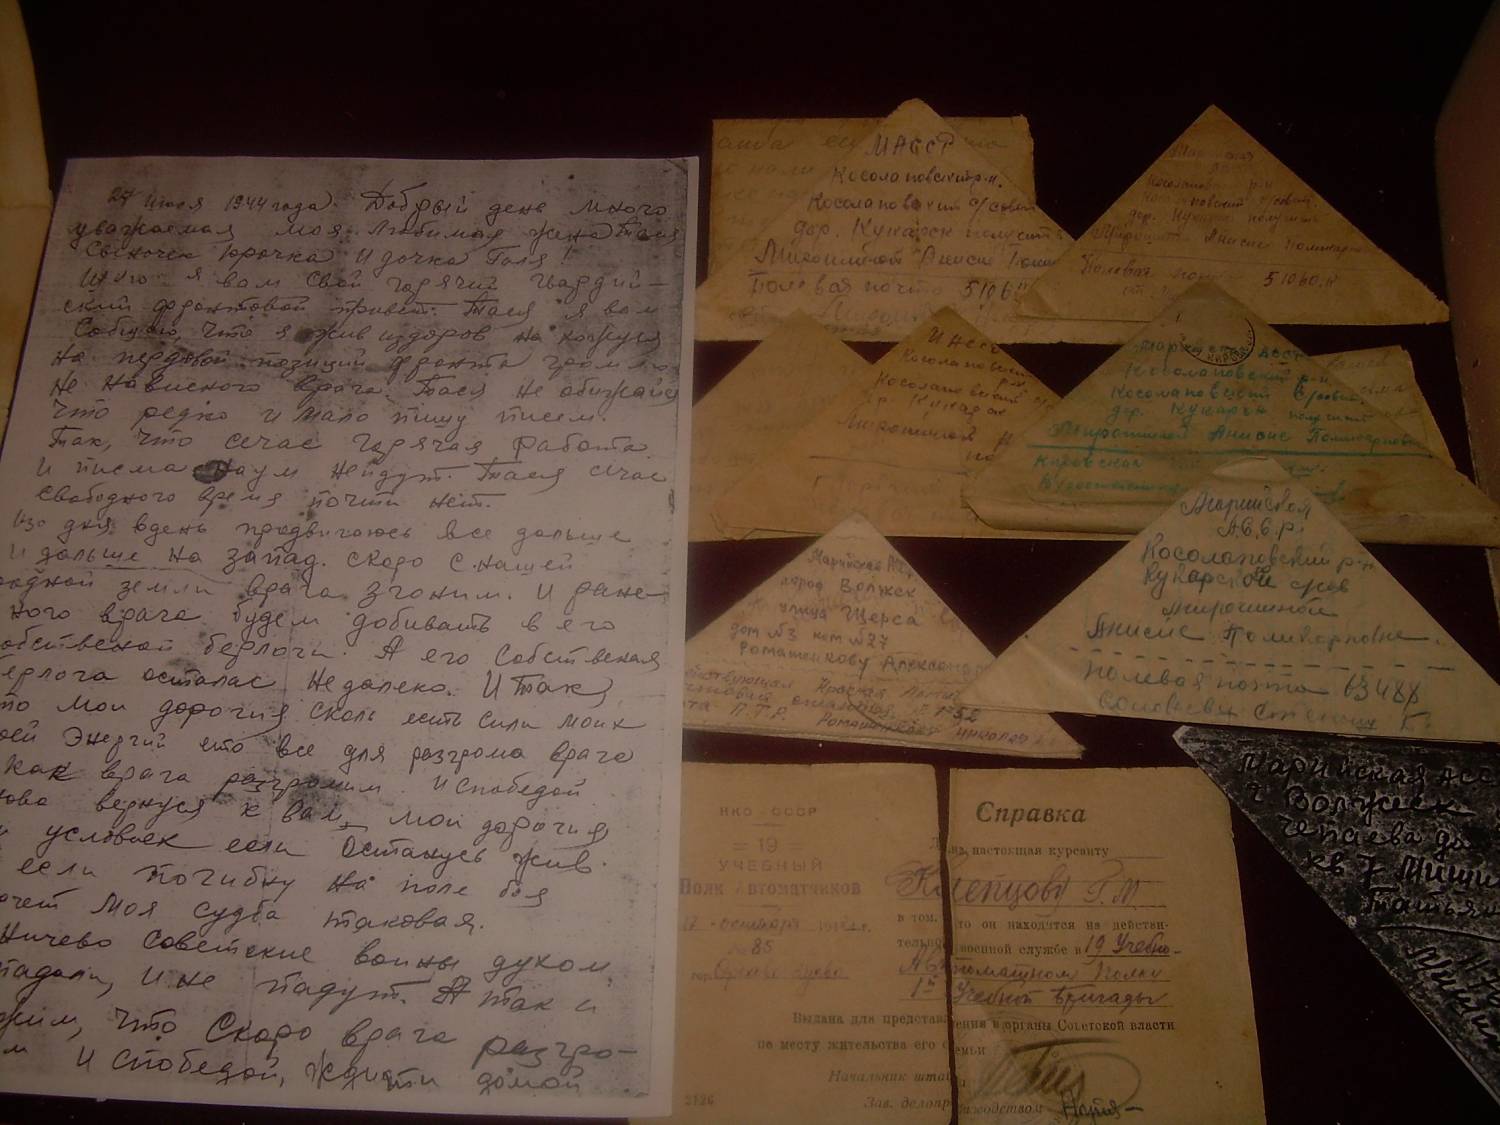 27 июля 1944 года. Добрый день много
уважаемая моя любимая жена Тася
сыночек Юрочка и дочка Галя!
Шлю я вам свой горячий гвардий-
ский фронтовой привет. Тася я вам
сообщаю, что я жив и здоров нахожуся
на передовой позиций фронта громлю
не нависного врага. Тася не обижайся
что редко и мало пишу писем
Так, что сечас горячая работа.
И писма наум нейдут. Тася сечас
свободного время почти нет.
изо дня вдень продвигаюсь все дальше
и дальше на запад. скоро с нашей
родной земли врага згоним. И ране-
ного врага будем добивать в его
собственой берлоги. А его собственая
берлога осталас недалеко. И так,
что мои дорогия сколь есть силы моих
моей энергий ето все для разгрома врага
как врага разгромим. И спобедой
снова вернуся к вам, мои дорогия
условиек если останусь жив.
если погибну на поле боя
моя судба таковая.
Ничево советские воины духом
падали, и не падут. А так и
что скоро врага разгро-
м И спобедой, ждити домой
МАССР
Косолаповский р-н.
Косолаповский с/совет
дер. Кукарск получить
Мирошиной Анисие
Полевая почта 5106
Косолаповский р-н
дер. Кукарск получить
Анисие Поликарп
Полевая почта 51060.К
МАССР
Косолаповский
р-н
Косолаповский
др. Кукарск
Мирошиной
Марийская АССР
Косолаповский р-н
Косолаповский с/совет
дер. Кукарск получить
Мирошиной Анисие Поликарповне
Кировская
Марийская
город Волжск
улица Щерса
дом №3 ком №27
Ромашенкову Александр
Действующая Красная Армия
Ромашенков Николай
Марийская
А.С.С.р.
Косолаповский р-н
Кукарской с/сов
Мирошиной
Анисие Поликарповне.
полевая почта 63488
Соловьев Степан Г.
Марийская АССР
г Волжск
чепаева до
кв 7 Миши
Татья
НКО СССР
= 19 =
УЧЕБНЫЙ
Полк Автоматчиков
17 - октября 194 г.
№ 85
Справка
Дана настоящая курсанту
Клепцову Г. М.
в том, что он находится на действи-
тельной военной службе в 19 Учебно-
Автоматном полку
1й Учебной бригады
Выдана для представления в органы Советской власти
по месту жительства его семьи
Начальник штаба
Зав. делопроизводством
2126